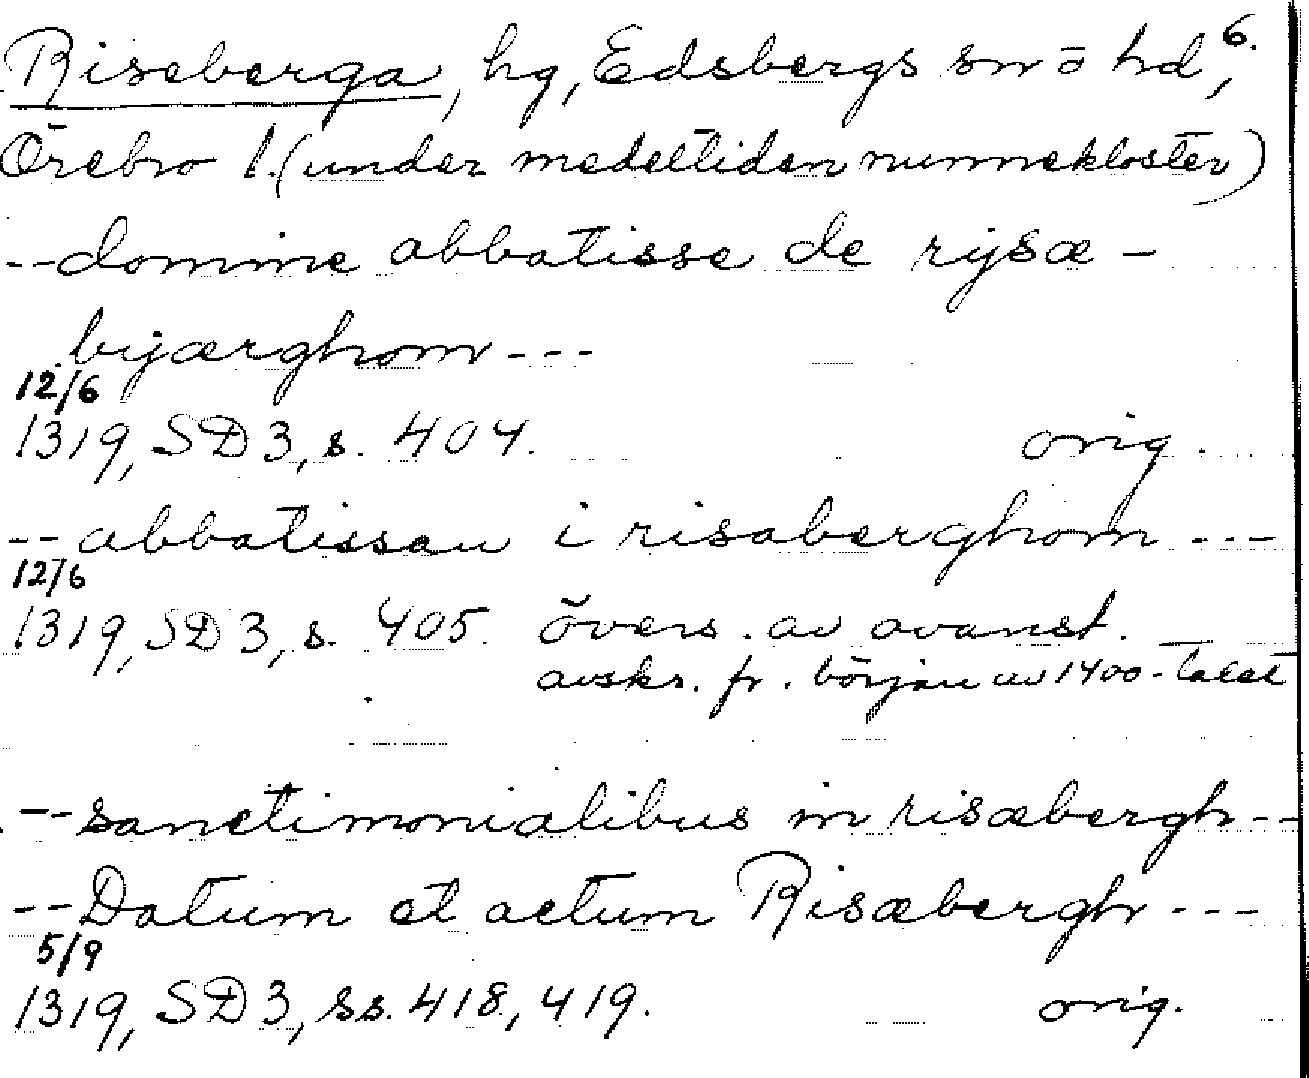 Riseberga, hg, Edsbergs sn o hd, 6.
Örebro l. (under medeltiden nunnekloster)
-- domine abbatisse de rysæ -
byærghom ---
12/6
1319, SD 3, s. 404. orig.
-- abbatissan i risaberghom ---
12/6
1319, SD 3, s. 405. övers. av ovanst.
avskr. fr. början av 1400-talet
-- sanctimonialibus in risæbergh --
-- Datum et actum Risæbergh ---
5/9
1319, SD 3, ss. 418, 419. orig.